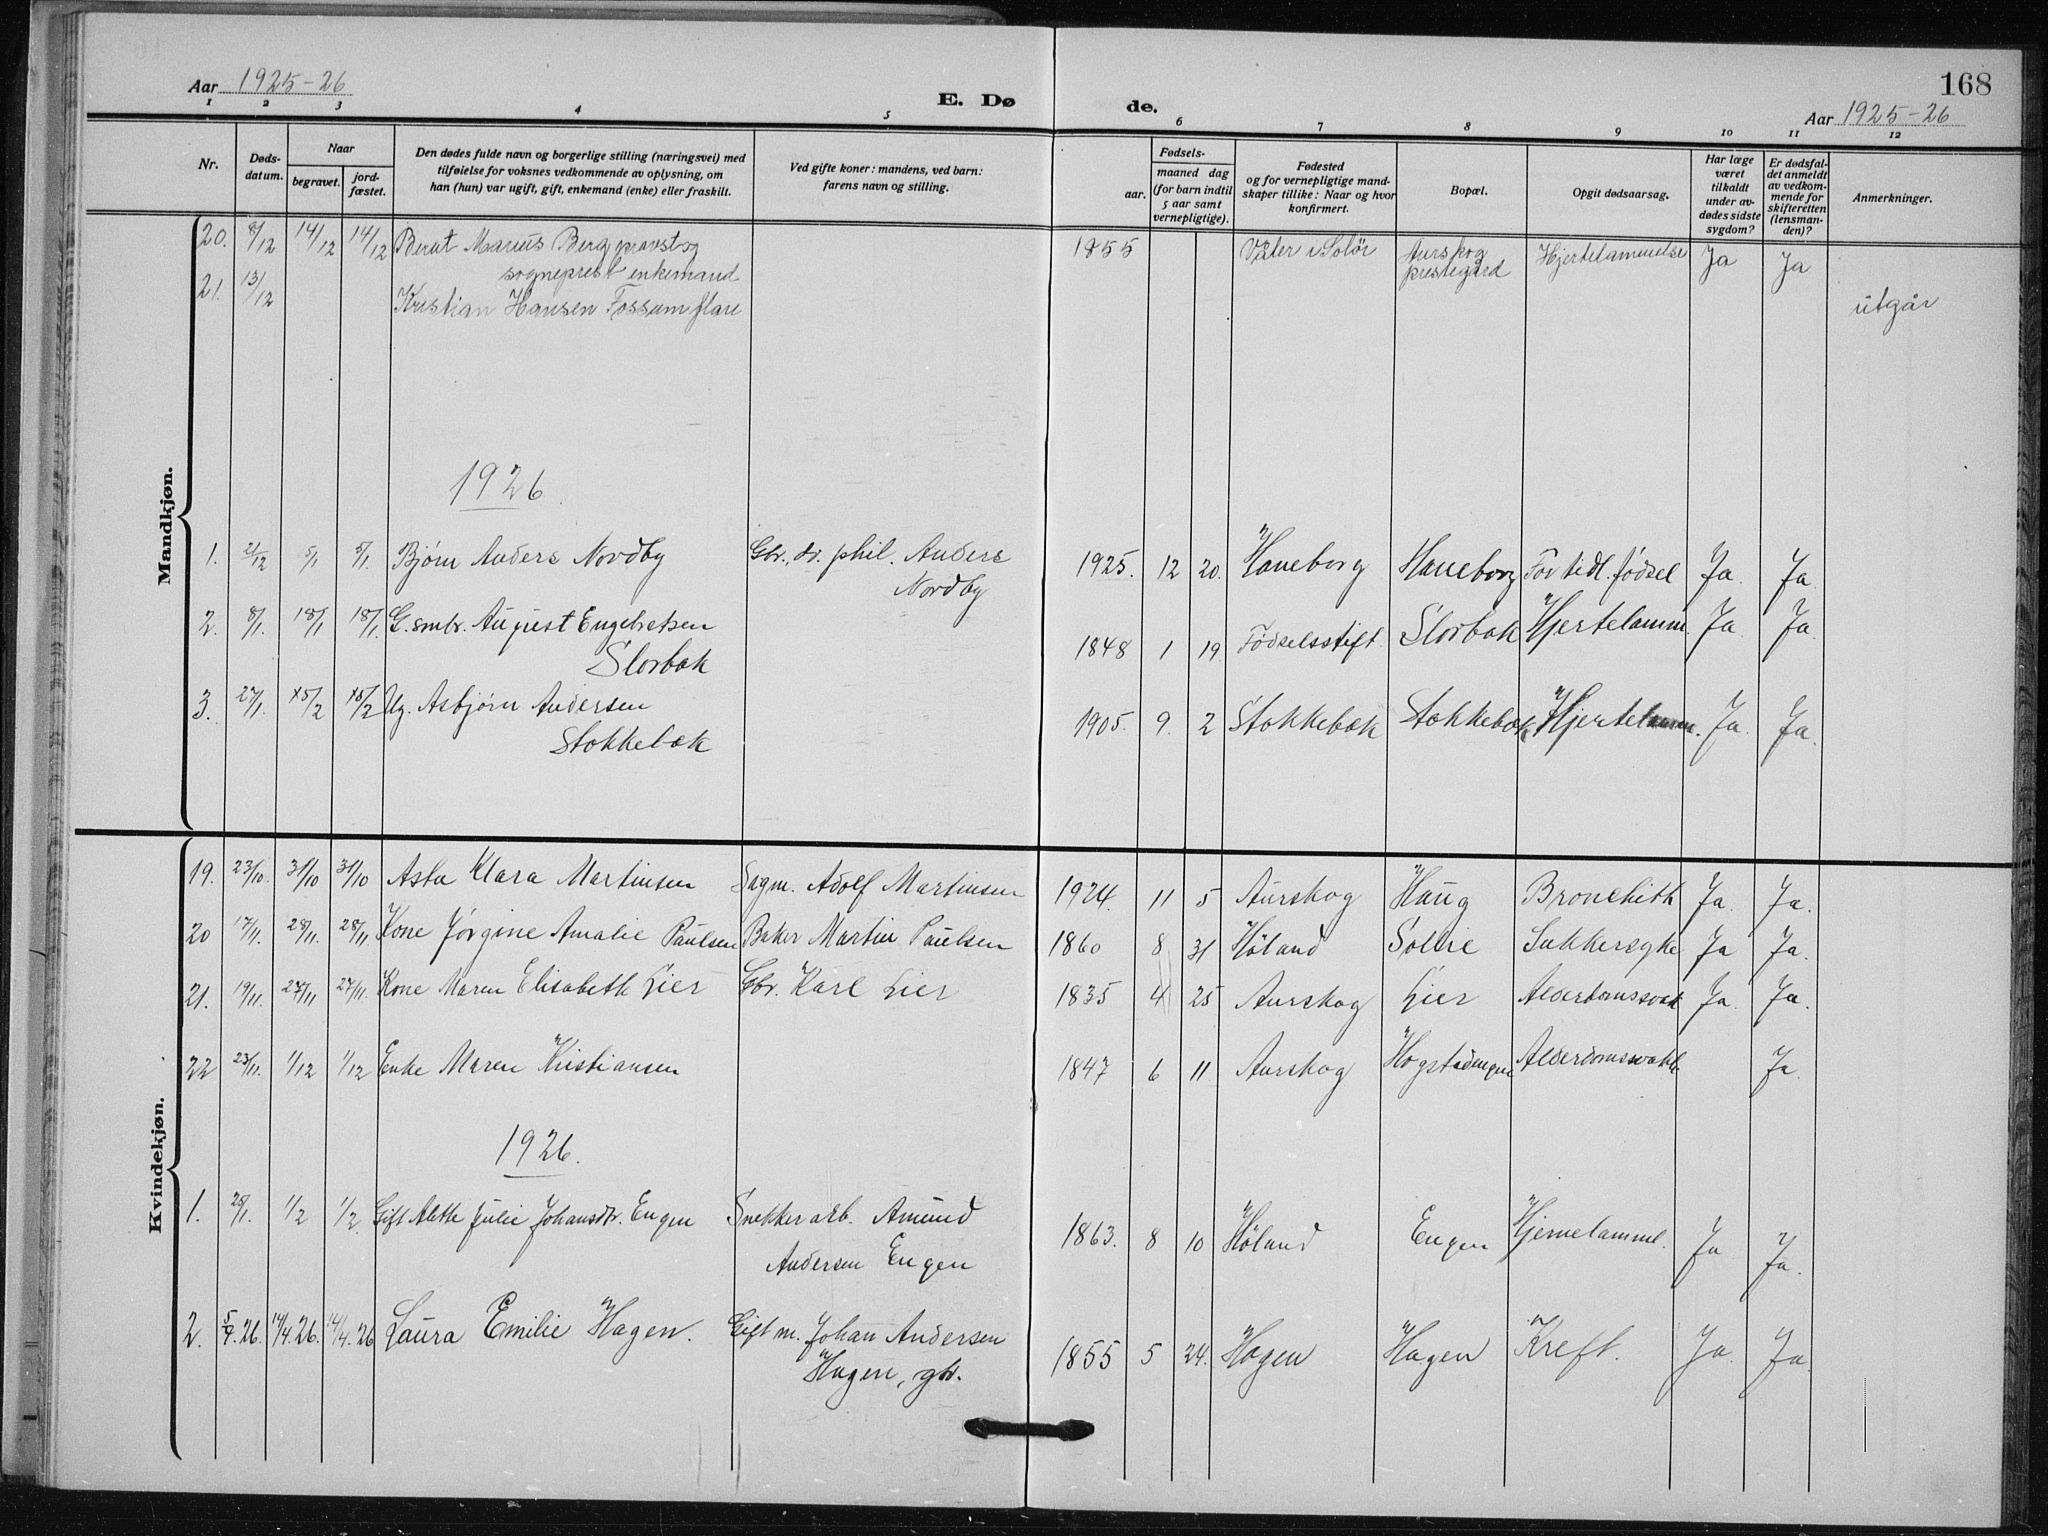 168
Aar 1925-26
E. Dø
de.
Aar 1925-26
1 2 3 4 5 6 7 8 9 10 11 12
Nr.
Døds-
datum.
Naar
begravet.
jord-
fæstet.
Den dødes fulde navn og borgerlige stilling (næringsvei) med
tilføielse for voksnes vedkommende av oplysning, om
han (hun) var ugift, gift, enkemand (enke) eller fraskilt.
Ved gifte koner: mandens, ved barn:
farens navn og stilling.
Fødsels-
aar.
maaned dag
(for barn indtil
5 aar samt
vernepligtige).
Fødested
og for vernepligtige mand-
skaper tillike: Naar og hvor
konfirmert.
Bopæl.
Opgit dødsaarsag.
Har læge
været
tilkaldt
under av-
dødes sidste
sygdom?
Er dødsfal-
det anmeldt
av vedkom-
mende for
skifteretten
(lensman-
den)?
Anmerkninger.
Mandkjøn.
20. 8/12 14/12 14/12 Bernt Marius Berg provst og 1855 Våler i Solör Aurskog Hjertelammelse Ja Ja
sogneprest enkemand prestegård
21. 13/12 Kristian Hansen Fossum flare utgår
1926
1. 21/12 5/1 5/1. Bjørn Anders Nordby Gbr., dr. phil. Anders 1925. 12 20. Haneborg Haneborg For tidl. fødsel Ja. Ja.
Nordby
2. 8/1. 18/1 18/1. G. smbr. August Engebretsen 1848 1 19. Fødselsstift. Slorbak Hjertelamm. Ja. Ja.
Slorbak
3. 27/1. 5/2 5/2 Ug. Asbjørn Andersen 1905. 9. 2 Stokkebæk Stokkebæk Hjertelamm. Ja. Ja.
Stokkebæk
Kvindekjøn.
19. 23/10. 31/10 31/10 Asta Klara Martinsen Sagm. Adolf Martinsen 1924. 11 5 Aurskog Haug Bronchith Ja. Ja.
20 17/11. 28/11. 28/11. Kone Jørgine Amalie Paulsen Baker Martin Paulsen 1860 8 31 Høland Sollie Sukkersyke Ja Ja.
21. 19/11. 27/11 27/11. Kone Maren Elisabeth Lier Gbr. Karl Lier 1835 4 25 Aurskog Lier Alderdomssvak Ja. Ja.
22 23/11. 1/12 1/12 Enke Maren Kristiansen 1847 6 11 Aurskog Alderdomssvakh. Ja.
1926.
1. 25/1. 1/2 1/2. Gift Alette Julie Johansdtr. Engen Snekkerarb. Amund 1863. 8 10 Høland Engen Hjernelamml. Ja Ja.
Andersen Engen
2. 5/4.26. 14/4.26. 14/4.26 Laura Emilie Hagen. Gift m. Johan Andersen 1855 5 24. Hagen Hagen Kreft. Ja. Ja.
Hagen, gbr.